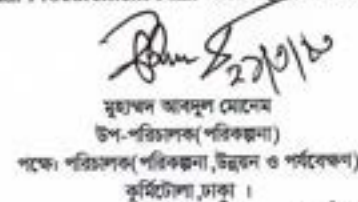 ২১/৩/১৩
মুহাম্মদ আবদুল মোনেম
উপ-পরিচালক(পরিকল্পনা)
পক্ষে: পরিচালক(পরিকল্পনা,উন্নয়ন ও পর্যবেক্ষণ)
কুর্মিটোলা,ঢাকা ।